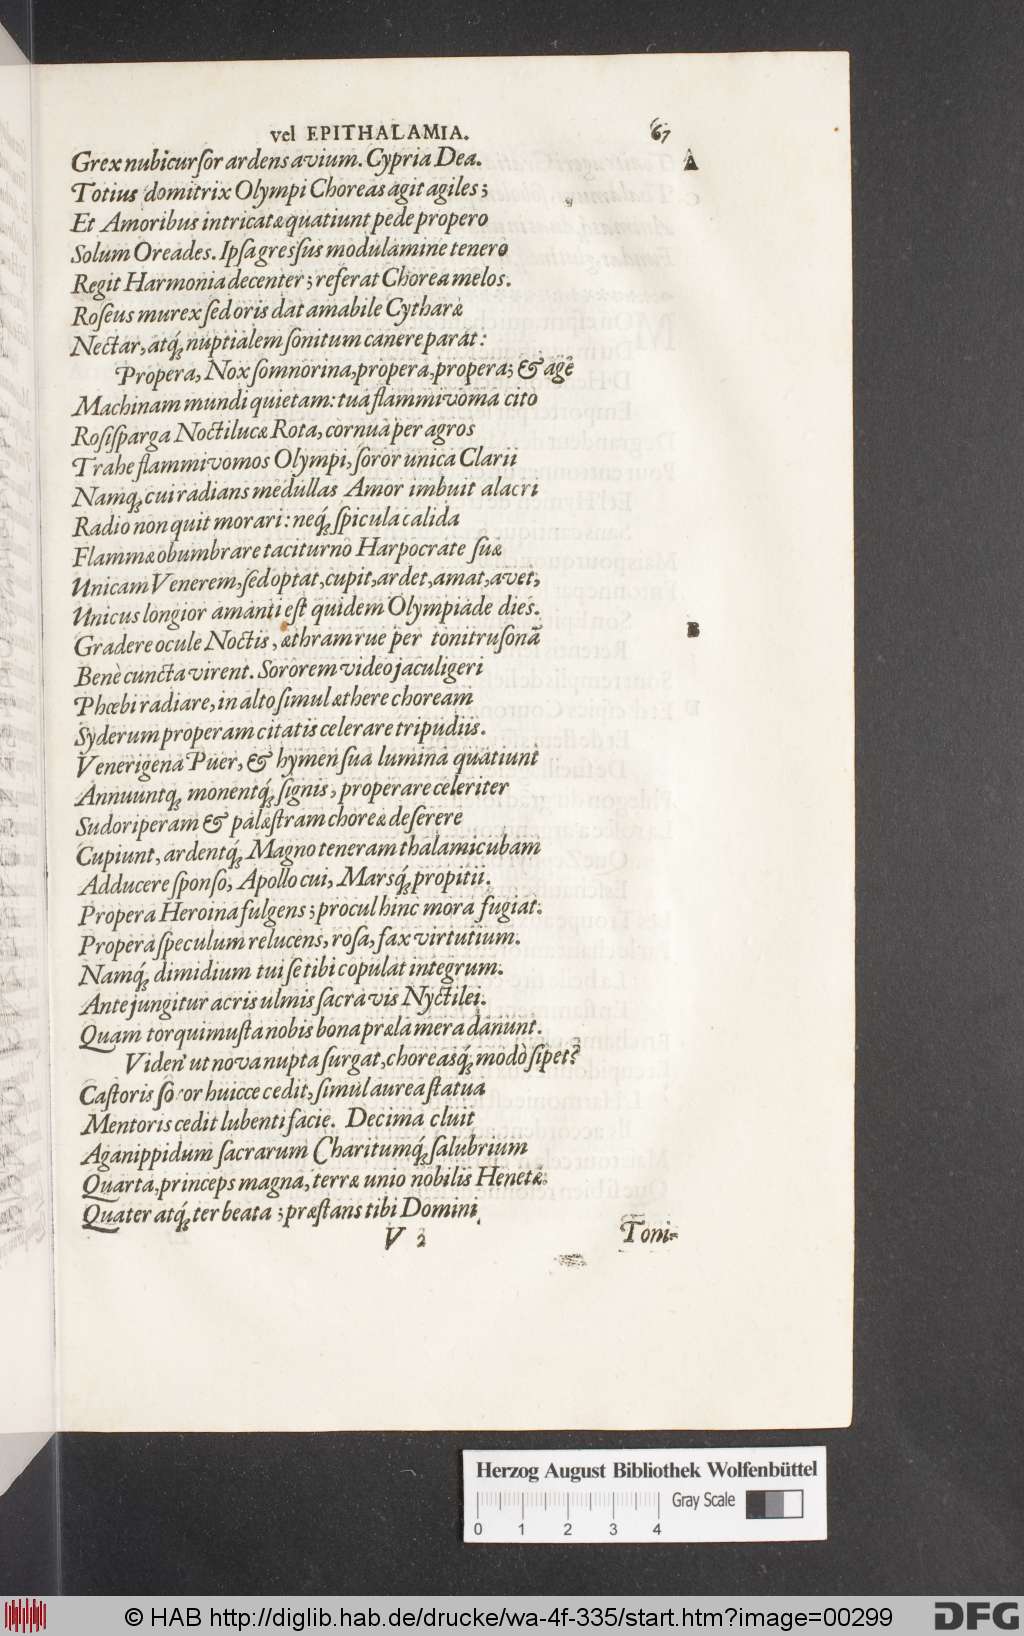 vel EPITHALAMIA. 67
Grex nubicursor ardens avium. Cypria Dea. A
Totius domitrix Olympi Choreas agit agiles;
Et Amoribus intricatæ quatiunt pede propero
Solum Oreades. Ipsa gressus modulamine tenero
Regit Harmonia decenter; referat Chorea melos.
Roseus murex sed oris dat amabile Cytharæ
Nectar, atq́; nuptialem sonitum canere parat:
Propera, Nox somnorina, propera, propera; & age
Machinam mundi quietam: tua flammivoma cito
Rosisparga Noctilucæ Rota, cornua per agros
Trahe flammivomos Olympi, soror unica Clarii
Namq; cui radians medullas Amor imbuit alacri
Radio non quit morari: neq́; spicula calida
Flammæ obumbrare taciturno Harpocrate suæ
Unicam Venerem, sed optat, cupit, ardet, amat, avet,
Unicus longior amanti est quidem Olympiade dies.
Gradere ocule Noctis, æthram rue per tonitrusonã B
Benè cuncta virent. Sororem video jaculigeri
Phœbi radiare, in alto simul æthere choream
Syderum properam citatis celerare tripudiis.
Venerigena Puer, & hymen sua lumina quatiunt
Annuuntq; monentq́; signis, properare celeriter
Sudoriperam & palæstram choreæ deserere
Cupiunt, ardentq́; Magno teneram thalami cubam
Adducere sponso, Apollo cui, Marsq́; propitii.
Propera Heroina fulgens; procul hinc mora fugiat.
Propera speculum relucens, rosa, fax virtutium.
Namq́; dimidium tui se tibi copulat integrum.
Ante jungitur acris ulmis sacra vis Nyctilei.
Quam torqui musta nobis bona præla mera danunt.
Viden' ut nova nupta surgat, choreasq́; modò sipet?
Castoris soror huicce cedit, simul aurea statua
Mentoris cedit lubenti facie. Decima cluit
Aganippidum sacrarum Charitumq́; salubrium
Quarta, princeps magna, terræ unio nobilis Henetæ.
Quater atq́; ter beata; præstans tibi Domini
V 2 Toni-
Herzog August Bibliothek Wolfenbüttel
Gray Scale
0 1 2 3 4
© HAB http://diglib.hab.de/drucke/wa-4f-335/start.htm?image=00299 DFG